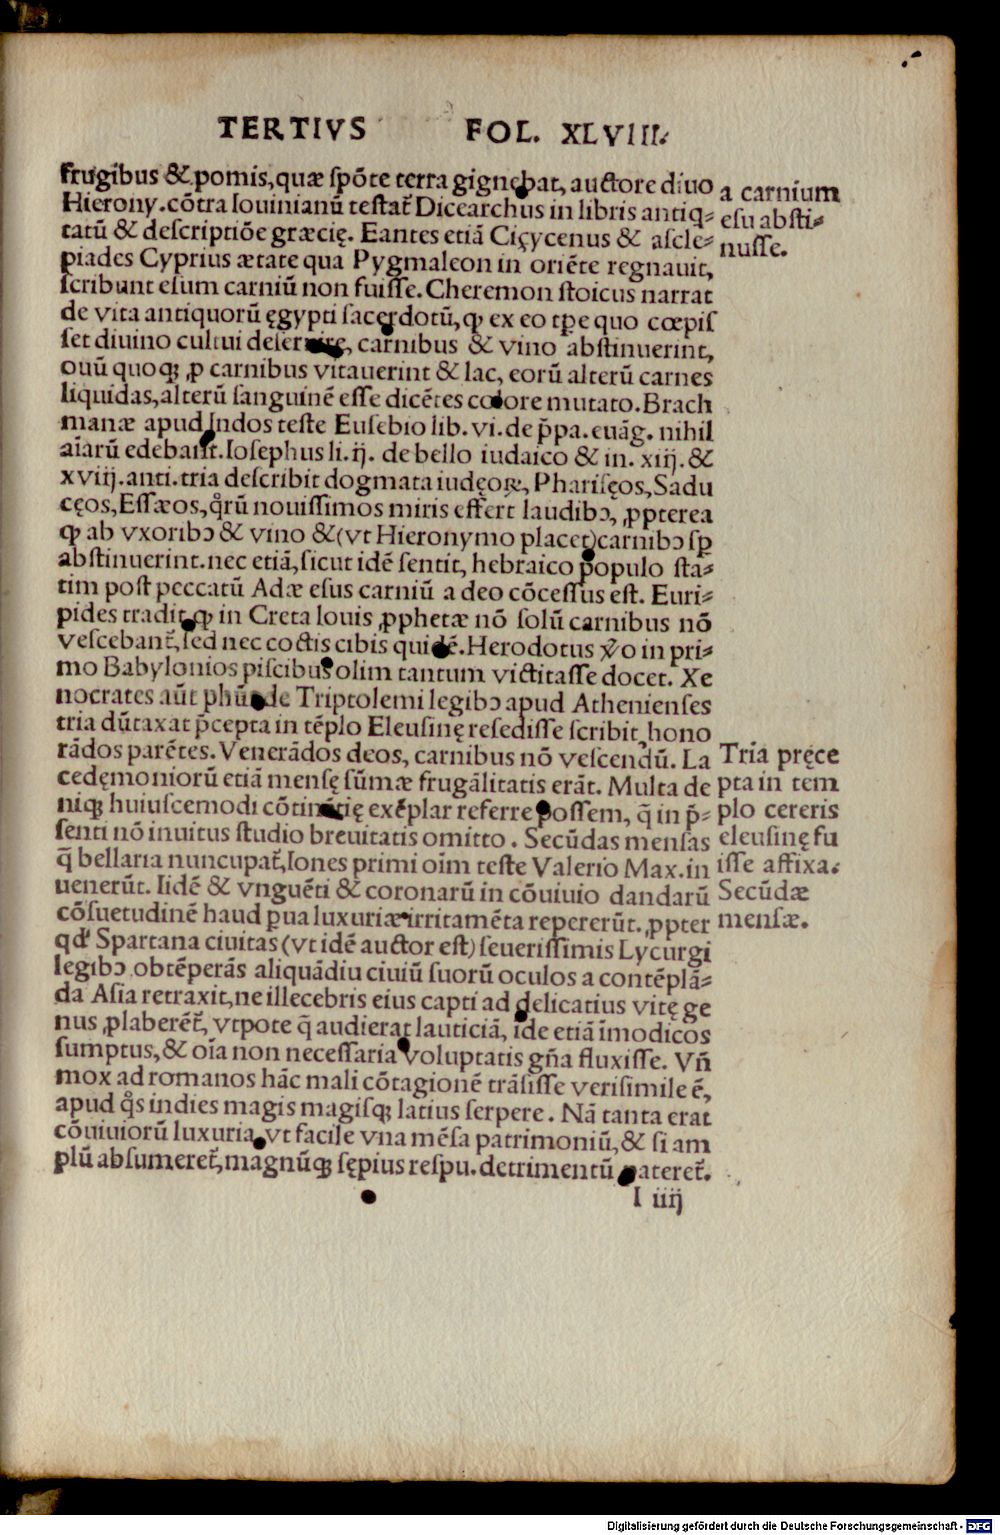 TERTIVS FOL. XLVIII.
frugibus & pomis, quæ ſpõte terra gignebat, auctore diuo
Hierony. cõtra Iouinianũ teſtat᷑ Dicearchus in libris antiq⸗
tatũ & deſcriptiõe græcię. Eantes etiã Ciçycenus & aſcle⸗
piades Cyprius ætate qua Pygmaleon in oriẽte regnauit,
ſcribunt eſum carniũ non fuiſſe. Cheremon ſtoicus narrat
de vita antiquorũ ęgypti ſacerdotũ, ꝙ ex eo tp̃e quo cœpiſ
ſet diuino cultui deſeruire, carnibus & vino abſtinuerint,
ouũ quoqꝫ ꝓ carnibus vitauerint & lac, eorũ alterũ carnes
liquidas, alterũ ſanguinẽ eſſe dicẽtes colore mutato. Brach
manæ apud Indos teſte Euſebio lib. vi. de p̃pa. euãg. nihil
aĩarũ edebant. Ioſephus li. ij. de bello iudaico & in. xiij. &
xviij. anti. tria deſcribit dogmata iudęoꝝ, Phariſęos, Sadu
cęos, Eſſæos, q̊rũ nouiſſimos miris effert laudibꝰ, ꝓpterea
ꝙ ab vxoribꝰ & vino & (vt Hieronymo placet) carnibꝰ ſꝑ
abſtinuerint. nec etiã, ſicut idẽ ſentit, hebraico populo ſta⸗
tim poſt peccatũ Adæ eſus carniũ a deo cõceſſus eſt. Euri⸗
pides tradit, ꝙ in Creta Iouis ꝓphetæ nõ ſolũ carnibus nõ
veſcebant᷑, ſed nec coctis cibis quidẽ. Herodotus v̊o in pri⸗
mo Babylonios piſcibus olim tantum victitaſſe docet. Xe
nocrates aũt phũs de Triptolemi legibꝰ apud Athenienſes
tria dũtaxat p̃cepta in tẽplo Eleuſinę reſediſſe ſcribit, hono
rãdos parẽtes. Venerãdos deos, carnibus nõ veſcendũ. La
cedęmoniorũ etiã menſę ſũmæ frugãlitatis erãt. Multa de
niqꝫ huiuſcemodi cõtinẽtię exẽplar referre poſſem, q̃ in p̃⸗
ſenti nõ inuitus ſtudio breuitatis omitto. Secũdas menſas
q̃ bellaria nuncupat᷑, Iones primi oĩm teſte Valerio Max. in
uenerũt. Iidẽ & vnguẽti & coronarũ in cõuiuio dandarũ
cõſuetudinẽ haud ꝑua luxuriæ irritamẽta repererũt. ꝓpter
qđ Spartana ciuitas (vt idẽ auctor eſt) ſeueriſſimis Lycurgi
legibꝰ obtẽperãs aliquãdiu ciuiũ ſuorũ oculos a contẽplã⸗
da Aſia retraxit, ne illecebris eius capti ad delicatius vitę ge
nus ꝓlaberẽt᷑, vtpote q̃ audierat lauticiã, ĩde etiã ĩmodicos
ſumptus, & oĩa non neceſſaria voluptatis gña fluxiſſe. Vñ
mox ad romanos hãc mali cõtagionẽ trãſiſſe veriſimile ẽ,
apud q̊s indies magis magiſqꝫ latius ſerpere. Nã tanta erat
cõuiuiorũ luxuria, vt facile vna mẽſa patrimoniũ, & ſi am
plũ abſumeret᷑, magnũqꝫ ſępius reſpu. detrimentũ pateret᷑.
I iiij
a carnium
eſu abſti⸗
nuſſe.
Tria pręce
pta in tem
plo cereris
eleuſinę fu
iſſe affixa.
Secũdæ
menſæ.
Digitalisierung gefördert durch die Deutsche Forschungsgemeinschaft - DFG